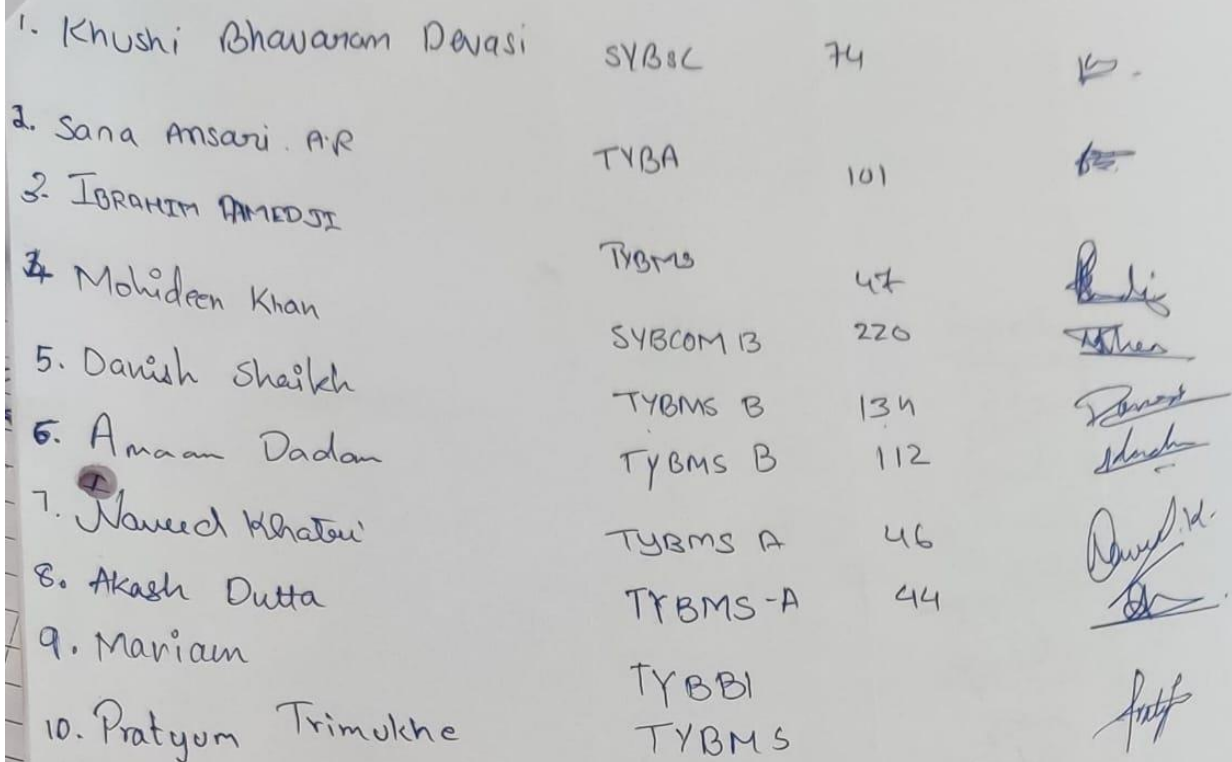 1. Khushi Bhavaram Devasi SYBSC 74
2. Sana Ansari. A.R TYBA 101
3. IBRAHIM TYBMS 47
4 Mohideen Khan SYBCOM B 220
5. Danish Shaikh TYBMS B 134
6. Amaan Dadan TYBMS B 112
7. Naveed Khatri TYBMS A 46
8. Akash Dutta TYBMS-A 44
9. Mariam TYBBI
10. Pratyum Trimukhe TYBMS